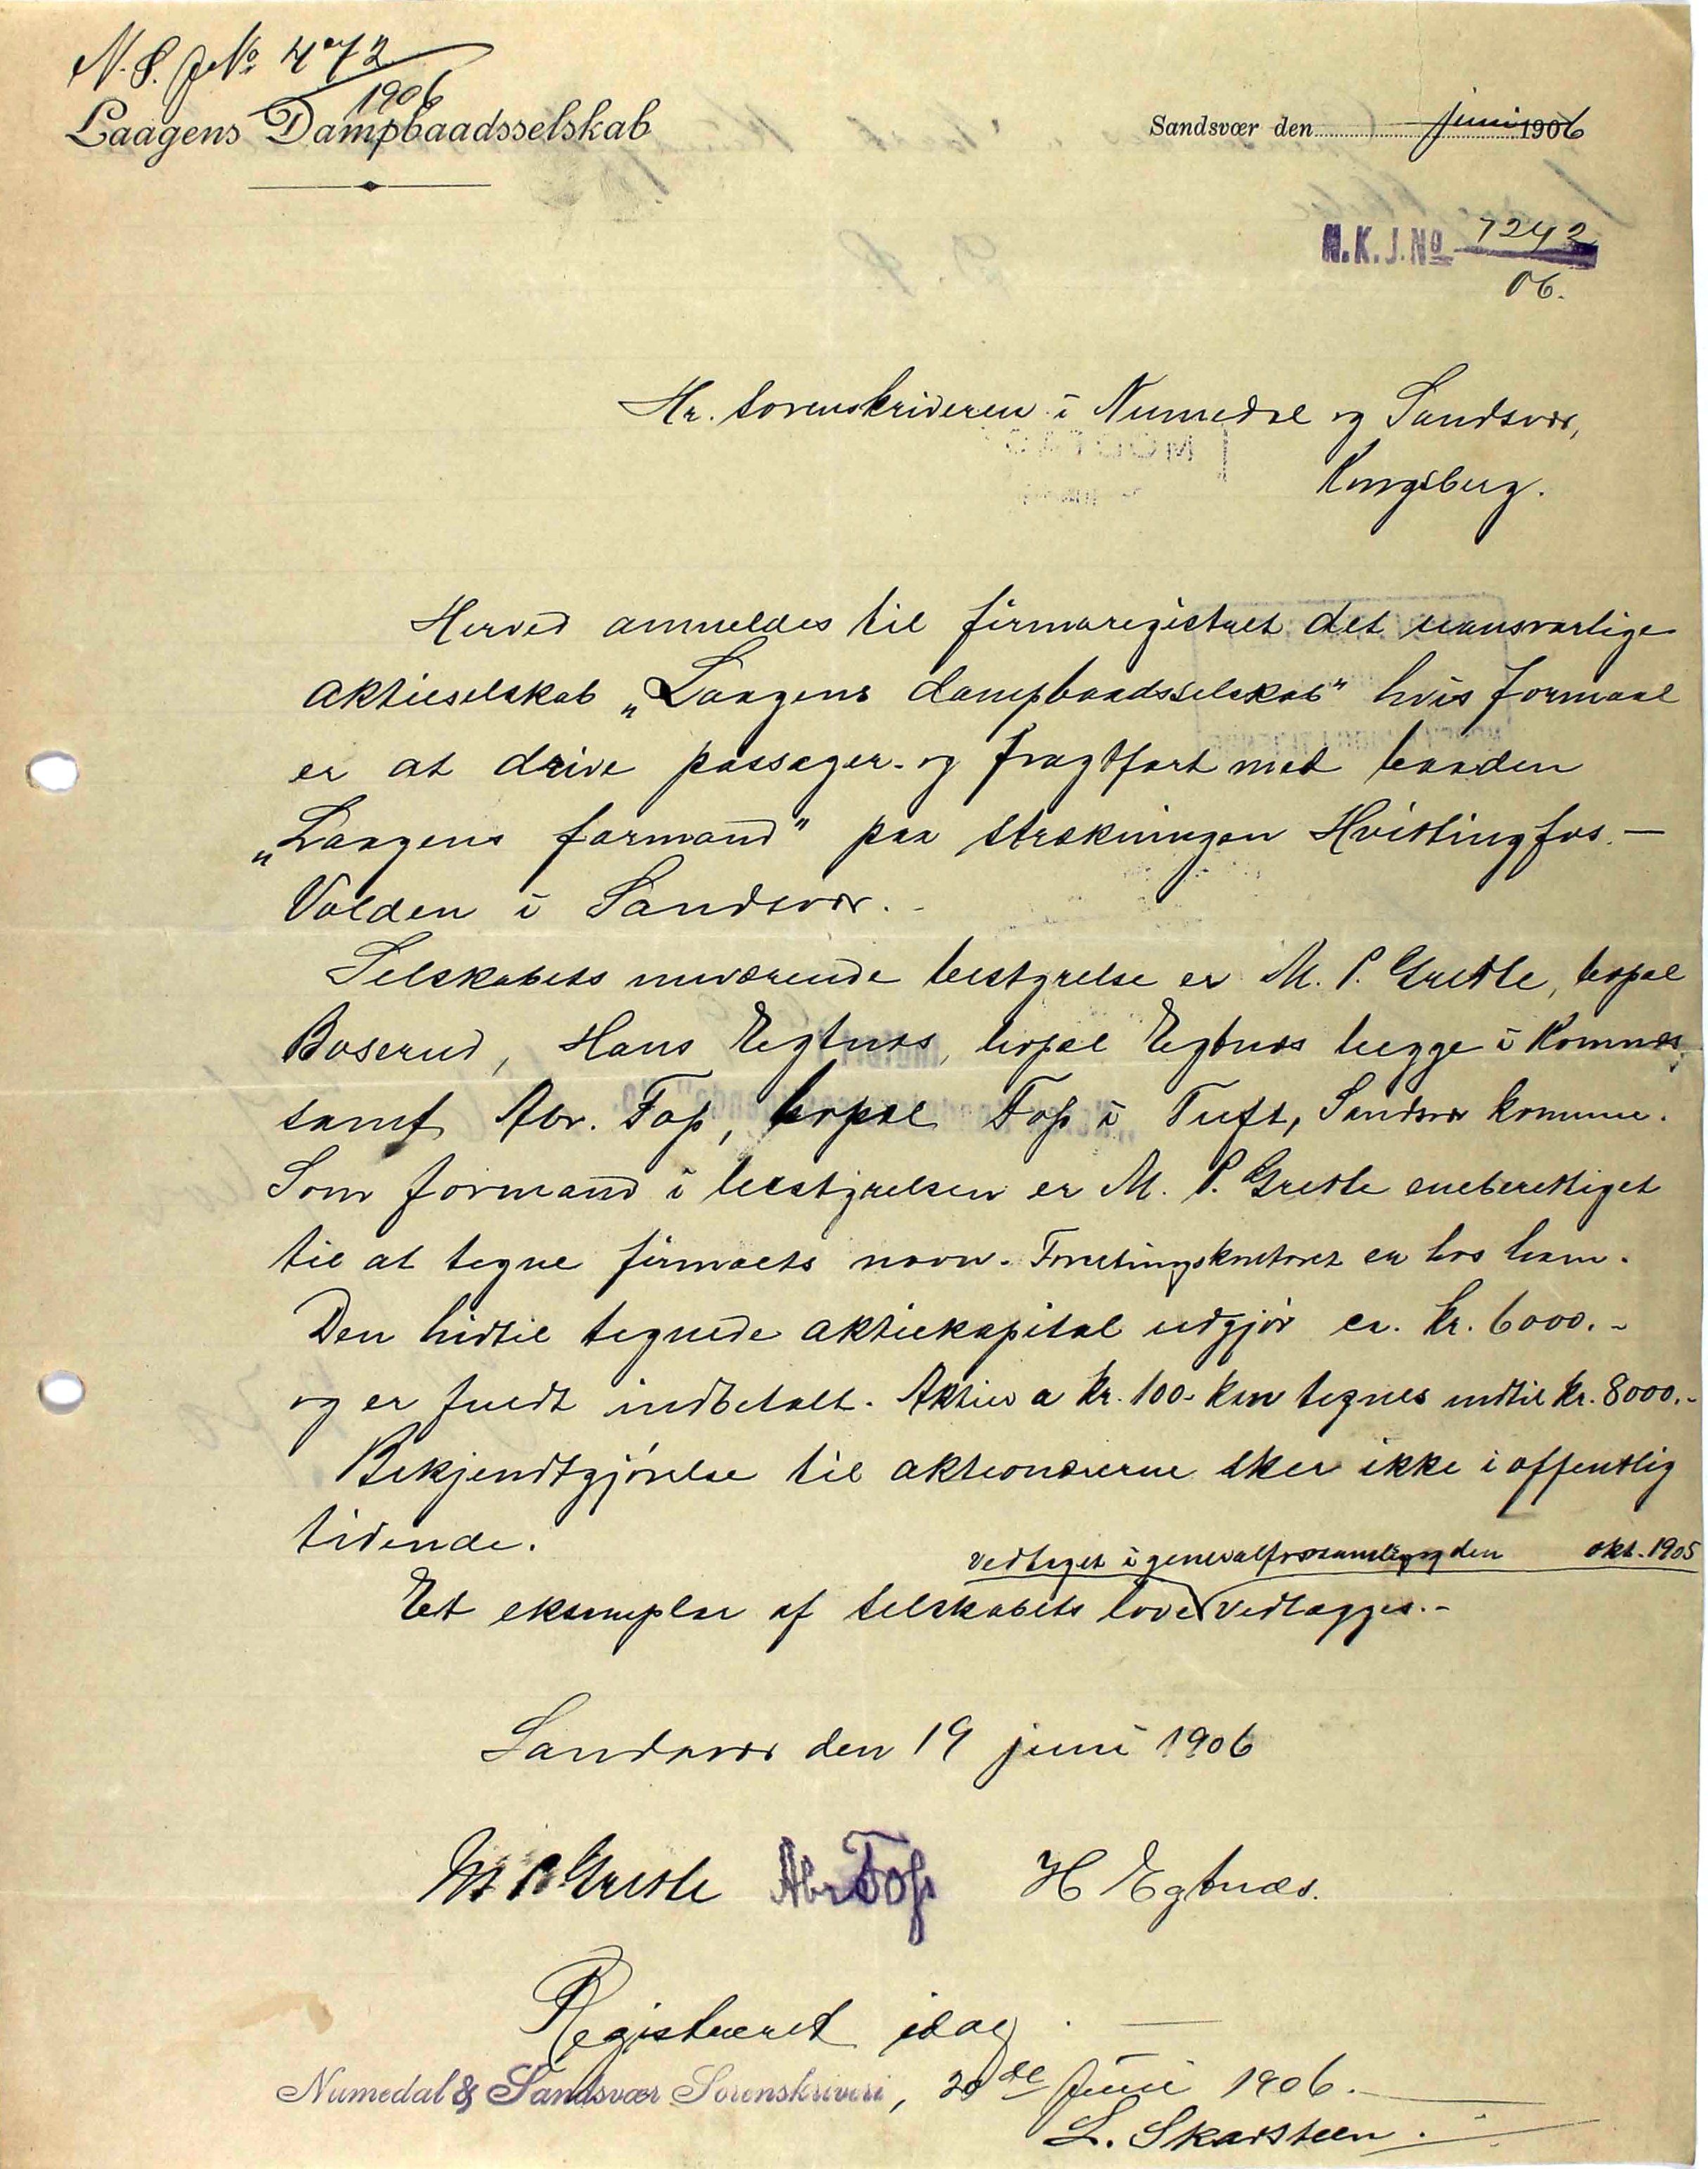 N. S. J No 472
1906
Laagens Dampbaadsselskab
Sandsvær den juni 1906
N.K.J.No 7242
06.
Hr. Sorenskriveren i Numedal og Sandsvær,
Kongsberg.
Herved anmeldes til firmaregistret det uansvarlige
aktieselskab „Laagens dampbaadsselskab" hvis formaal
er at drive passager- og fragtfart med baaden
„Laagens formand" paa strækningen Hvittingfos –
Volden i Sandsvær. -
Selskabets nuværende bestyrelse er M. P. Grette, bopæl
Boserud, Hans Egtnæs, bopæl Egtnæs begge i Komnæs,
samt Abr. Foss, bopæl Foss i Tuft, Sandsvær kommune.
Som formand i bestyrelsen er M. P. Grette eneberettiget
til at tegne firmaets navn. Forretningskontoret er hos ham.
Den hidtil tegnede aktiekapital udgjør ca. kr. 6000.-
og er fuldt indbetalt. Aktier a kr. 100.- kan tegnes indtil kr. 8000.-
Bekjendtgjørelse til aktionærerne sker ikke i offentlig
tidende.
vedtaget i generalforsamling den okt. 1905
Et eksemplar af selskabets love vedlægges. -
Sandsvær den 19 juni 1906
M P Grette Abr Foss H Egtnæs.
Registreret idag. —
Numedal & Sandsvær Sorenskriveri, 20de Juni 1906. —
L. Skarsteen.